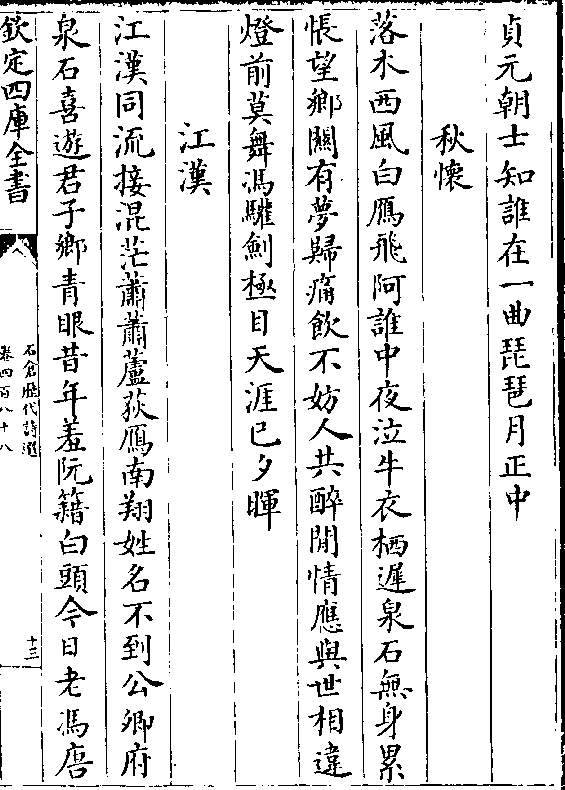 貞元朝士知誰在一曲琵琶月正中
秋懷
落木西風白鴈飛阿誰中夜泣牛衣栖遲泉石無身累
悵望鄉關有夢歸痛飲不妨人共醉閒情應與世相違
燈前莫舞馮驩劍極目天涯已夕暉
江漢
江漢同流接混茫蕭蕭蘆荻鴈南翔姓名不到公卿府
泉石喜遊君子鄉青眼昔年羞阮籍白頭今日老馮唐
欽定四庫全書
石倉歷代詩選
卷四百八十八
十三